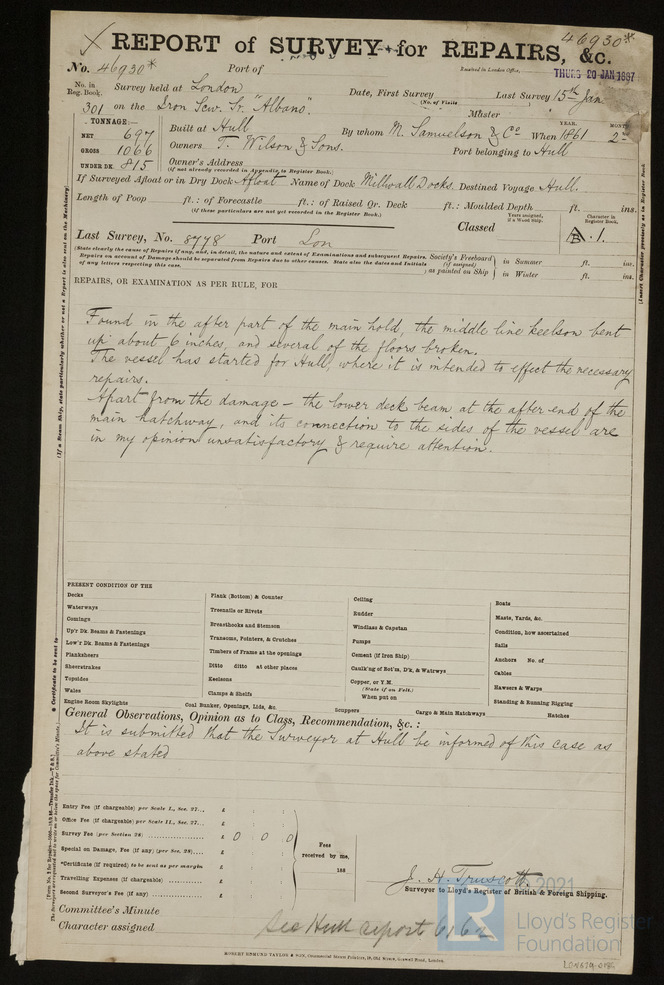 46930*
REPORT of SURVEY for REPAIRS, &c.
No. 46930* Port of
Received in London Office, THURS 20 JAN 1887
No. in Reg. Book. Survey held at London Date, First Survey Last Survey 15th Jan
(No. of Visits
301 on the Iron Scw. Sr. "Albano". Master
TONNAGE:
NET 697
GROSS 1066
UNDER DK. 815
Built at Hull By whom M. Samuelson & Co When 1861 YEAR. MONTH 2
Owners T. Wilson & Sons. Port belonging to Hull
Owner's Address
(if not already recorded in Appendix to Register Book.)
If Surveyed Afloat or in Dry Dock Afloat Name of Dock Millwall Docks. Destined Voyage Hull.
Length of Poop ft.: of Forecastle ft.: of Raised Qr. Deck ft.: Moulded Depth ft. ins.
(if these particulars are not yet recorded in the Register Book.)
Years assigned, if a Wood Ship. Character in Register Book.
Last Survey, No. 8778 Port Lon Classed A. 1.
(State clearly the cause of Repairs if any, and, in detail, the nature and extent of Examinations and subsequent Repairs.
Repairs on account of Damage should be separated from Repairs due to other causes. State also the dates and Initials
of any letters respecting this case.
Society's Freeboard (if assigned) as painted on Ship
in Summer ft. ins.
in Winter ft. ins.
REPAIRS, OR EXAMINATION AS PER RULE, FOR
Found in the after part of the main hold, the middle line keelson bent
up about 6 inches, and several of the floors broken.
The vessel has started for Hull, where it is intended to effect the necessary
repairs.
Apart from the damage - the lower deck beam at the after end of the
main hatchway, and its connection to the sides of the vessel are
in my opinion unsatisfactory & require attention.
PRESENT CONDITION OF THE
Decks
Waterways
Comings
Up'r Dk. Beams & Fastenings
Low'r Dk. Beams & Fastenings
Planksheers
Sheerstrakes
Topsides
Wales
Engine Room Skylights
Plank (Bottom) & Counter
Treenails or Rivets
Breasthooks and Stemson
Transoms, Pointers, & Crutches
Timbers of Frame at the openings
Ditto ditto at other places
Keelsons
Clamps & Shelfs
Coal Bunker, Openings, Lids, &c.
Ceiling
Rudder
Windlass & Capstan
Pumps
Cement (if Iron Ship)
Caulk'ng of Bot'm, D'k, & Watrwys
Copper, or Y.M.
(State if on Felt.)
When put on
Scuppers
Cargo & Main Hatchways
Boats
Masts, Yards, &c.
Condition, how ascertained
Sails
Anchors No. of
Cables
Hawsers & Warps
Standing & Running Rigging
Hatches
General Observations, Opinion as to Class, Recommendation, &c.:
It is submitted that the Surveyor at Hull be informed of this case as
above stated
Entry Fee (if chargeable) per Scale I., Sec. 27... £
Office Fee (if chargeable) per Scale II., Sec. 27... £
Survey Fee (per Section 28) £ 0 0 0
Special on Damage, Fee (if any) (per Sec. 28)... £
*Certificate (if required) to be sent as per margin
Travelling Expenses (if chargeable) £
Second Surveyor's Fee (if any) £
Fees received by me, 188
J. H. Truscott
Surveyor to Lloyd's Register of British & Foreign Shipping.
Committee's Minute
Character assigned
See Hull report 6162
ROBERT EDMUND TAYLOR & SON,
(If a Steam Ship, state particularly whether or not a Report is also sent on the Machinery)
* Certificate to be sent to
(Insert Character previously as in Register Book.)
© 2021
Lloyd's Register
Foundation